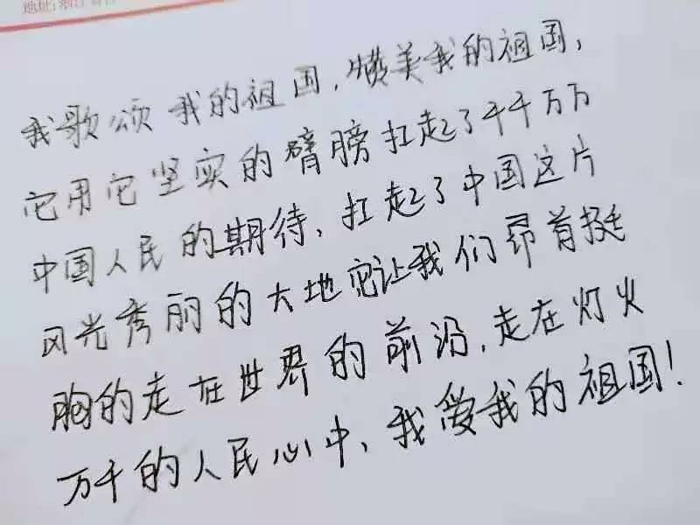 地址:浙江省
我歌颂我的祖国,赞美我的祖国,
它用它坚实的臂膀扛起了千千万万
中国人民的期待、扛起了中国这片
风光秀丽的大地它让我们昂首挺
胸的走在世界的前沿,走在灯火
万千的人民心中、我爱我的祖国!